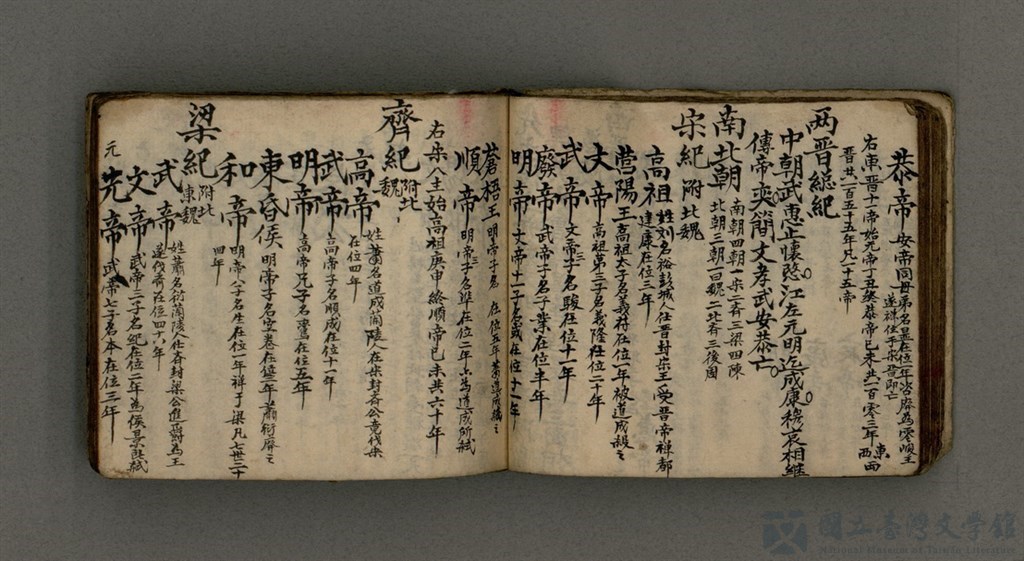 恭帝 安帝同母弟名 在位一年 廢為零順王
遂禪位于宋
右東晉十一帝始元帝丁丑終恭帝己未共一百零三年 東西
晉共一百五十五年凡十五帝
兩晉總紀
中朝武惠止懷愍江左元明迄成康穆哀相繼
傳帝奕簡文孝武安恭亡
南北朝 南朝四朝一宋二齊三梁四陳
北朝三朝一魏二北齊三後周
宋紀 附北魏
高祖 姓刘名裕彭城人仕晉封宋王受晉帝禅都
建康在位三年
營陽王 高祖太子名義符在位一年被道成
文帝 高祖第三子名義隆在位三十年
武帝 文帝三子名駿在位十一年
廢帝 武帝子名子業在位半年
明帝 文帝十一子名 在位十一年
蒼梧王 明帝子名 在位五年蕭道成
順帝 明帝三子名準在位二年 為道成所弒
右宋八主始高祖庚申終順帝己未共六十年
齊紀 附北魏
高帝 姓蕭名道成蘭陵人在宋封齊公竟伐宋
在位四年
武帝 高帝子名順成在位十一年
明帝 高帝兄子名鸞在位五年
東昏侯 明帝子名宝卷在位三年蕭衍廢之
和帝 明帝八子名 在位一年禅于梁凡七世二十
四年
梁紀 附北東魏
武帝 姓蕭名衍蘭陵人仕齊封梁公進爵為王
遂伐齊在位四十八年
文帝 武帝三子名紀在位二年為侯景所弒
元帝 武帝七子名 在位三年
國立臺灣文學館
National Museum of Taiwan Literature